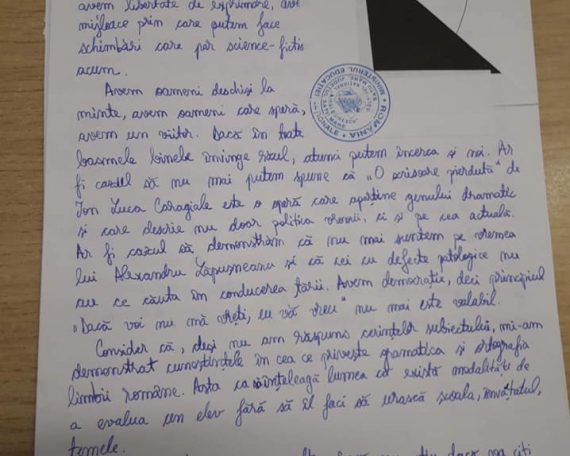 avem libertate de exprimare, avem
mijloace prin care putem face
schimbări care par science-fictio
acum.
Avem oameni deschiși la
minte, avem oameni care speră,
avem un viitor. Dacă în toate
basmele binele învinge răul, atunci putem încerca și noi. Ar
fi cazul să nu mai putem spune că "O scrisoare pierdută" de
Ion Luca Caragiale este o operă care aparține genului dramatic
și care descrie nu doar politica vremii, ci și pe cea actuală.
Ar fi cazul să demonstrăm că nu mai suntem pe vremea
lui Alexandru Lăpușneanu și că cei cu defecte patologice nu
au ce căuta în conducerea țării. Avem democrație, deci principiul
"Dacă voi nu mă vreți, eu vă vreu" nu mai este valabil.
Consider că, deși nu am răspuns cerințelor subiectului, mi-am
demonstrat cunoștințele în ceea ce privește gramatica și ortografia
limbii române. Asta ca să înțeleagă lumea că există modalități de
a evalua un elev fără să îl faci să urască școala, învățatul,
temele.
ROMÂNIA
MINISTERUL EDUCAȚIEI